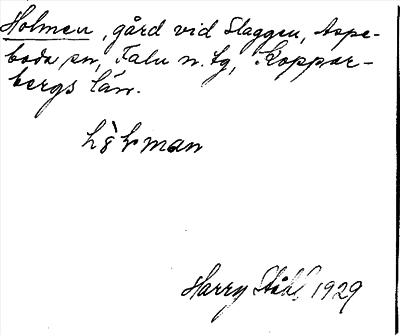 Holmen, gård vid Slaggen, Aspe-
boda sn, Falu n. tg, Koppar-
bergs län.
Harry Ståhl 1929